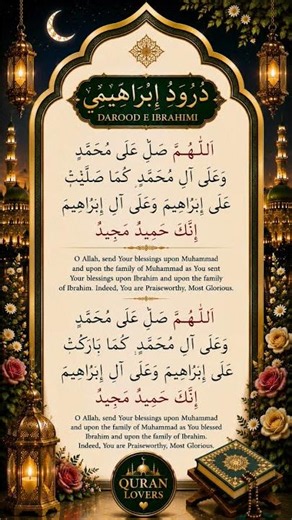 دُرُودُ إِبْرَاهِيْمِي
DAROOD E IBRAHIMI
اَللّٰهُمَّ صَلِّ عَلَى مُحَمَّدٍ
وَعَلَى آلِ مُحَمَّدٍ كَمَا صَلَّيْتَ
عَلَى إِبْرَاهِيمَ وَعَلَى آلِ إِبْرَاهِيمَ
إِنَّكَ حَمِيدٌ مَجِيدٌ
O Allah, send Your blessings upon Muhammad
and upon the family of Muhammad as You sent
Your blessings upon Ibrahim and upon the family
of Ibrahim. Indeed, You are Praiseworthy, Most Glorious.
اَللّٰهُمَّ صَلِّ عَلَى مُحَمَّدٍ
وَعَلَى آلِ مُحَمَّدٍ كَمَا بَارَكْتَ
عَلَى إِبْرَاهِيمَ وَعَلَى آلِ إِبْرَاهِيمَ
إِنَّكَ حَمِيدٌ مَجِيدٌ
O Allah, send Your blessings upon Muhammad
and upon the family of Muhammad as You blessed
Ibrahim and upon the family of Ibrahim.
Indeed, You are Praiseworthy, Most Glorious.
QURAN
LOVERS